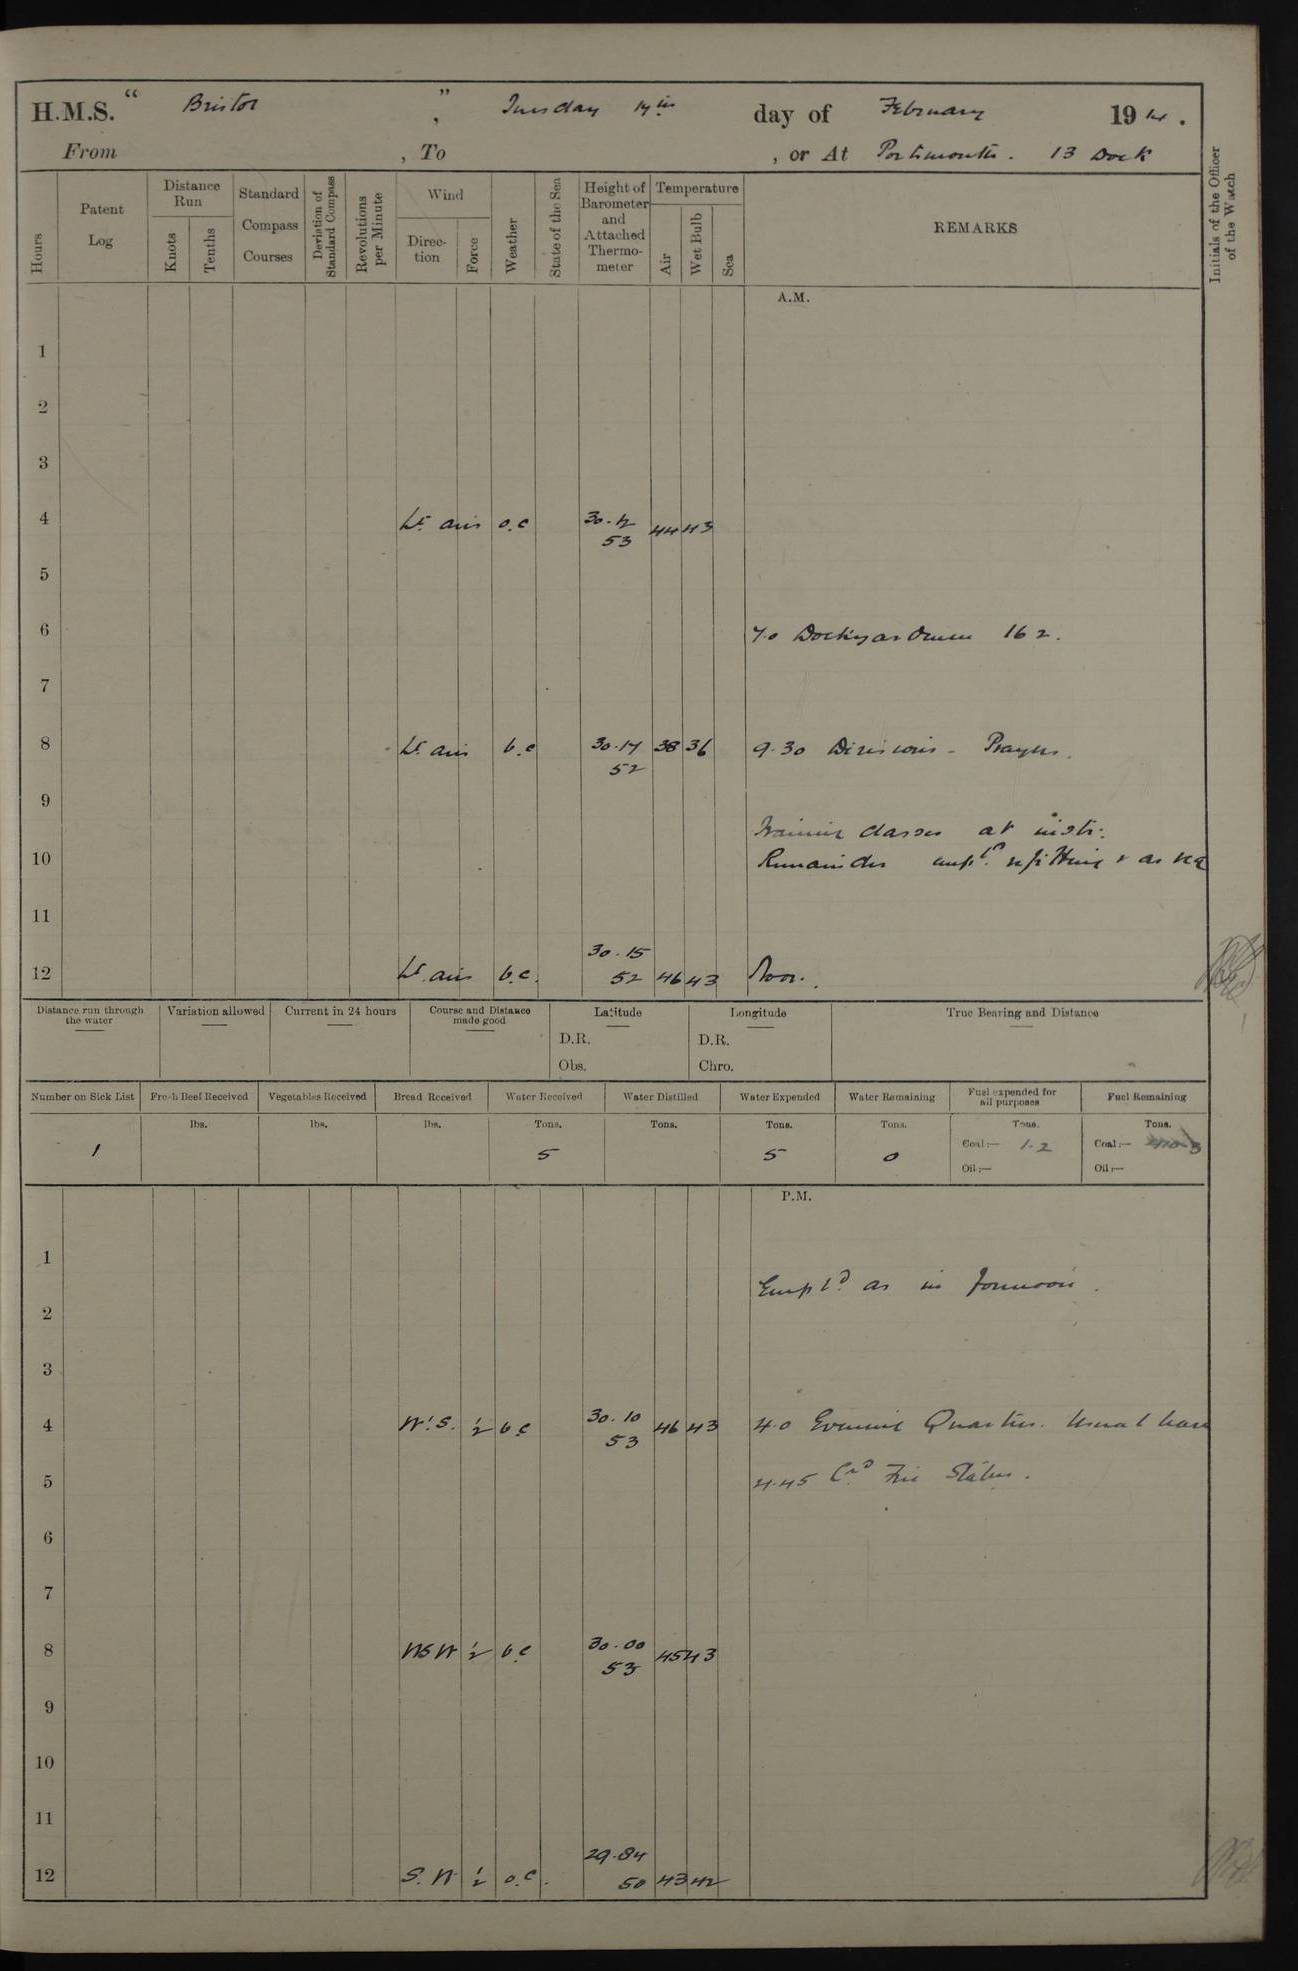 H.M.S. “ Bristol ” , Tuesday 17th day of February 1914 .
From , To , or At Portsmouth . 13 Dock
Hours
Patent Log
Distance Run
Knots
Tenths
Standard Compass Courses
Deviation of Standard Compass
Revolutions per Minute
Wind
Direc-tion
Force
Weather
State of the Sea
Height of Barometer and Attached Thermo-meter
Temperature
Air
Wet Bulb
Sea
REMARKS
Initials of the Officer of the Watch
A.M.
1
2
3
4 Lt airs o.c 30.12 53 44 43
5
6 7.0 Dockyardmen 162.
7
8 Lt airs b.c 30.14 52 38 36 9.30 Divisions - Prayers.
9
Training classes at instr:
10 Remainder empld. refitting & as req
11
12 Lt. airs b.c. 30.15 52 46 43 Noon.
Distance run through the water
Variation allowed
Current in 24 hours
Course and Distance made good
Latitude
D.R.
Obs.
Longitude
D.R.
Chro.
True Bearing and Distance
Number on Sick List
Fresh Beef Received
Vegetables Received
Bread Received
Water Received
Water Distilled
Water Expended
Water Remaining
Fuel expended for all purposes
Fuel Remaining
lbs. lbs. lbs. Tons. Tons. Tons. Tons. Tons. Tons.
1 5 5 0 Coal:— 1.2 Coal:—
Oil:— Oil:—
P.M.
1
Empld. as in forenoon.
2
3
4 W'.S. ½ b.c 30.10 53 46 43 4.0 Evening Quarters. Usual leave
5 4.45 Cld Fire Stations.
6
7
8 WSW ½ b.c 30.00 53 45 43
9
10
11
12 S.W ½ o.c. 29.84 50 43 42